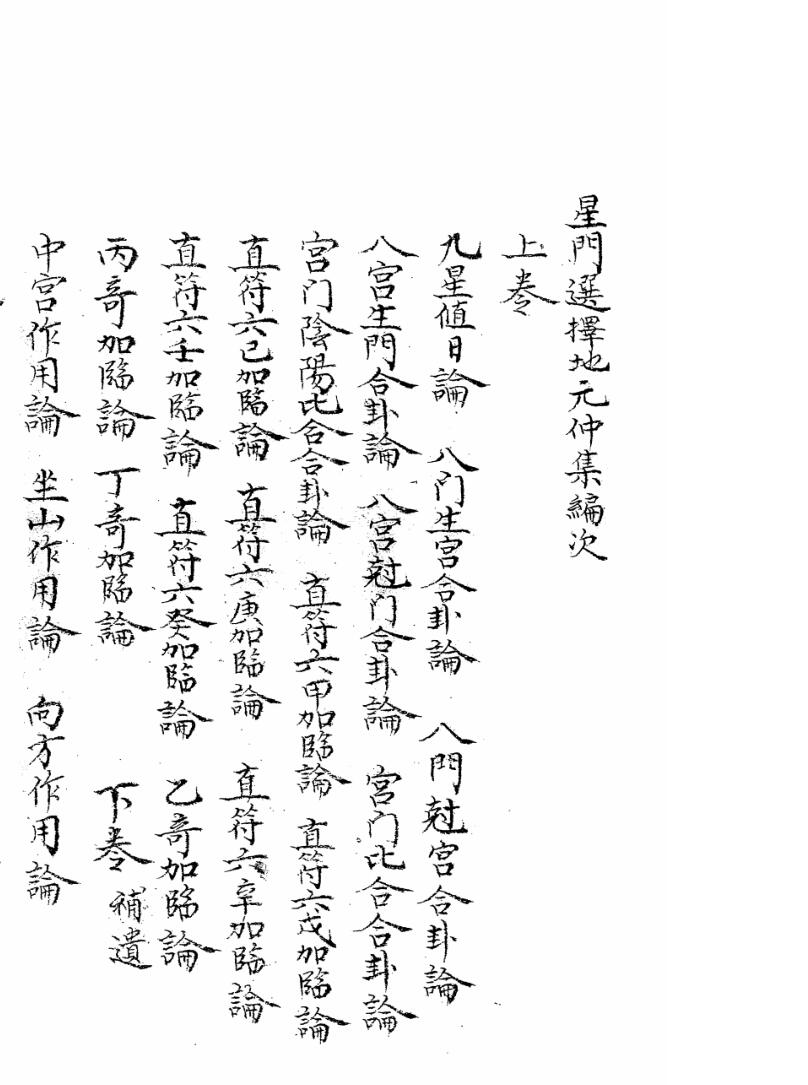 星門選擇地元仲集編次
上卷
九星值日論 八门生宮合卦論 八門尅宮合卦論
八宮生門合卦論 八宮尅门合卦論 宮门比合合卦論
宮门陰陽比合合卦論 直符六甲加臨論 直符六戊加臨論
直符六己加臨論 直符六庚加臨論 直符六辛加臨論
直符六壬加臨論 直符六癸加臨論 乙竒加臨論
丙竒加臨論 丁竒加臨論 下卷 補遺
中宮作用論 坐山作用論 向方作用論